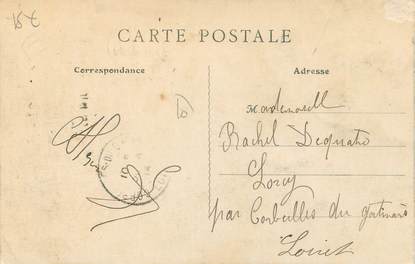 15€
CARTE POSTALE
Correspondance
Adresse
Mademoiselle
Rachel
Lorcy
par Corbeilles du Gatinais
Loiret